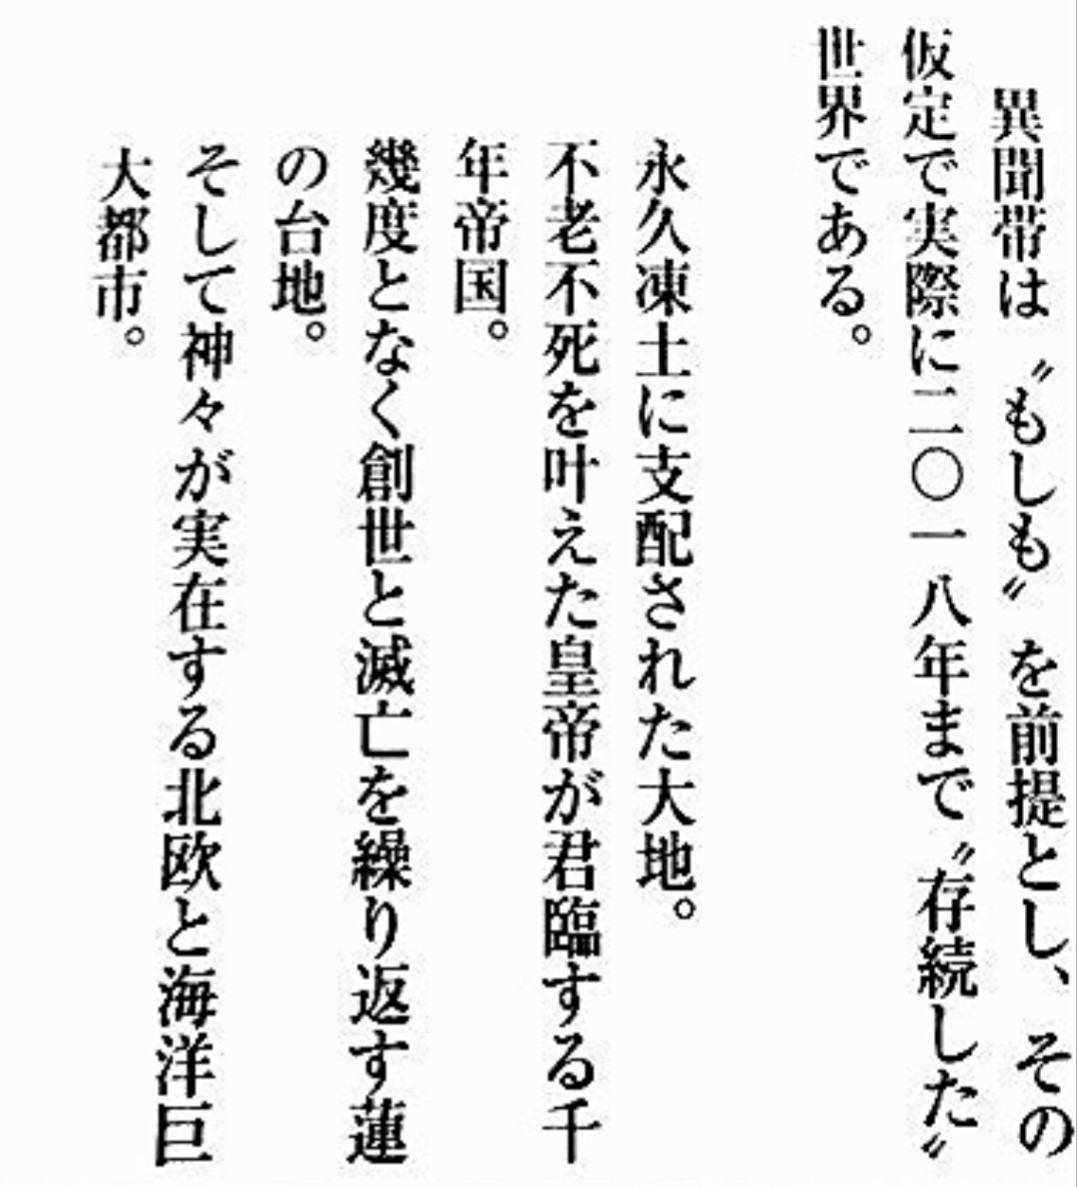 異聞帯は〝もしも〟を前提とし、その
仮定で実際に二〇一八年まで〝存続した〟
世界である。
永久凍土に支配された大地。
不老不死を叶えた皇帝が君臨する千
年帝国。
幾度となく創世と滅亡を繰り返す蓮
の台地。
そして神々が実在する北欧と海洋巨
大都市。